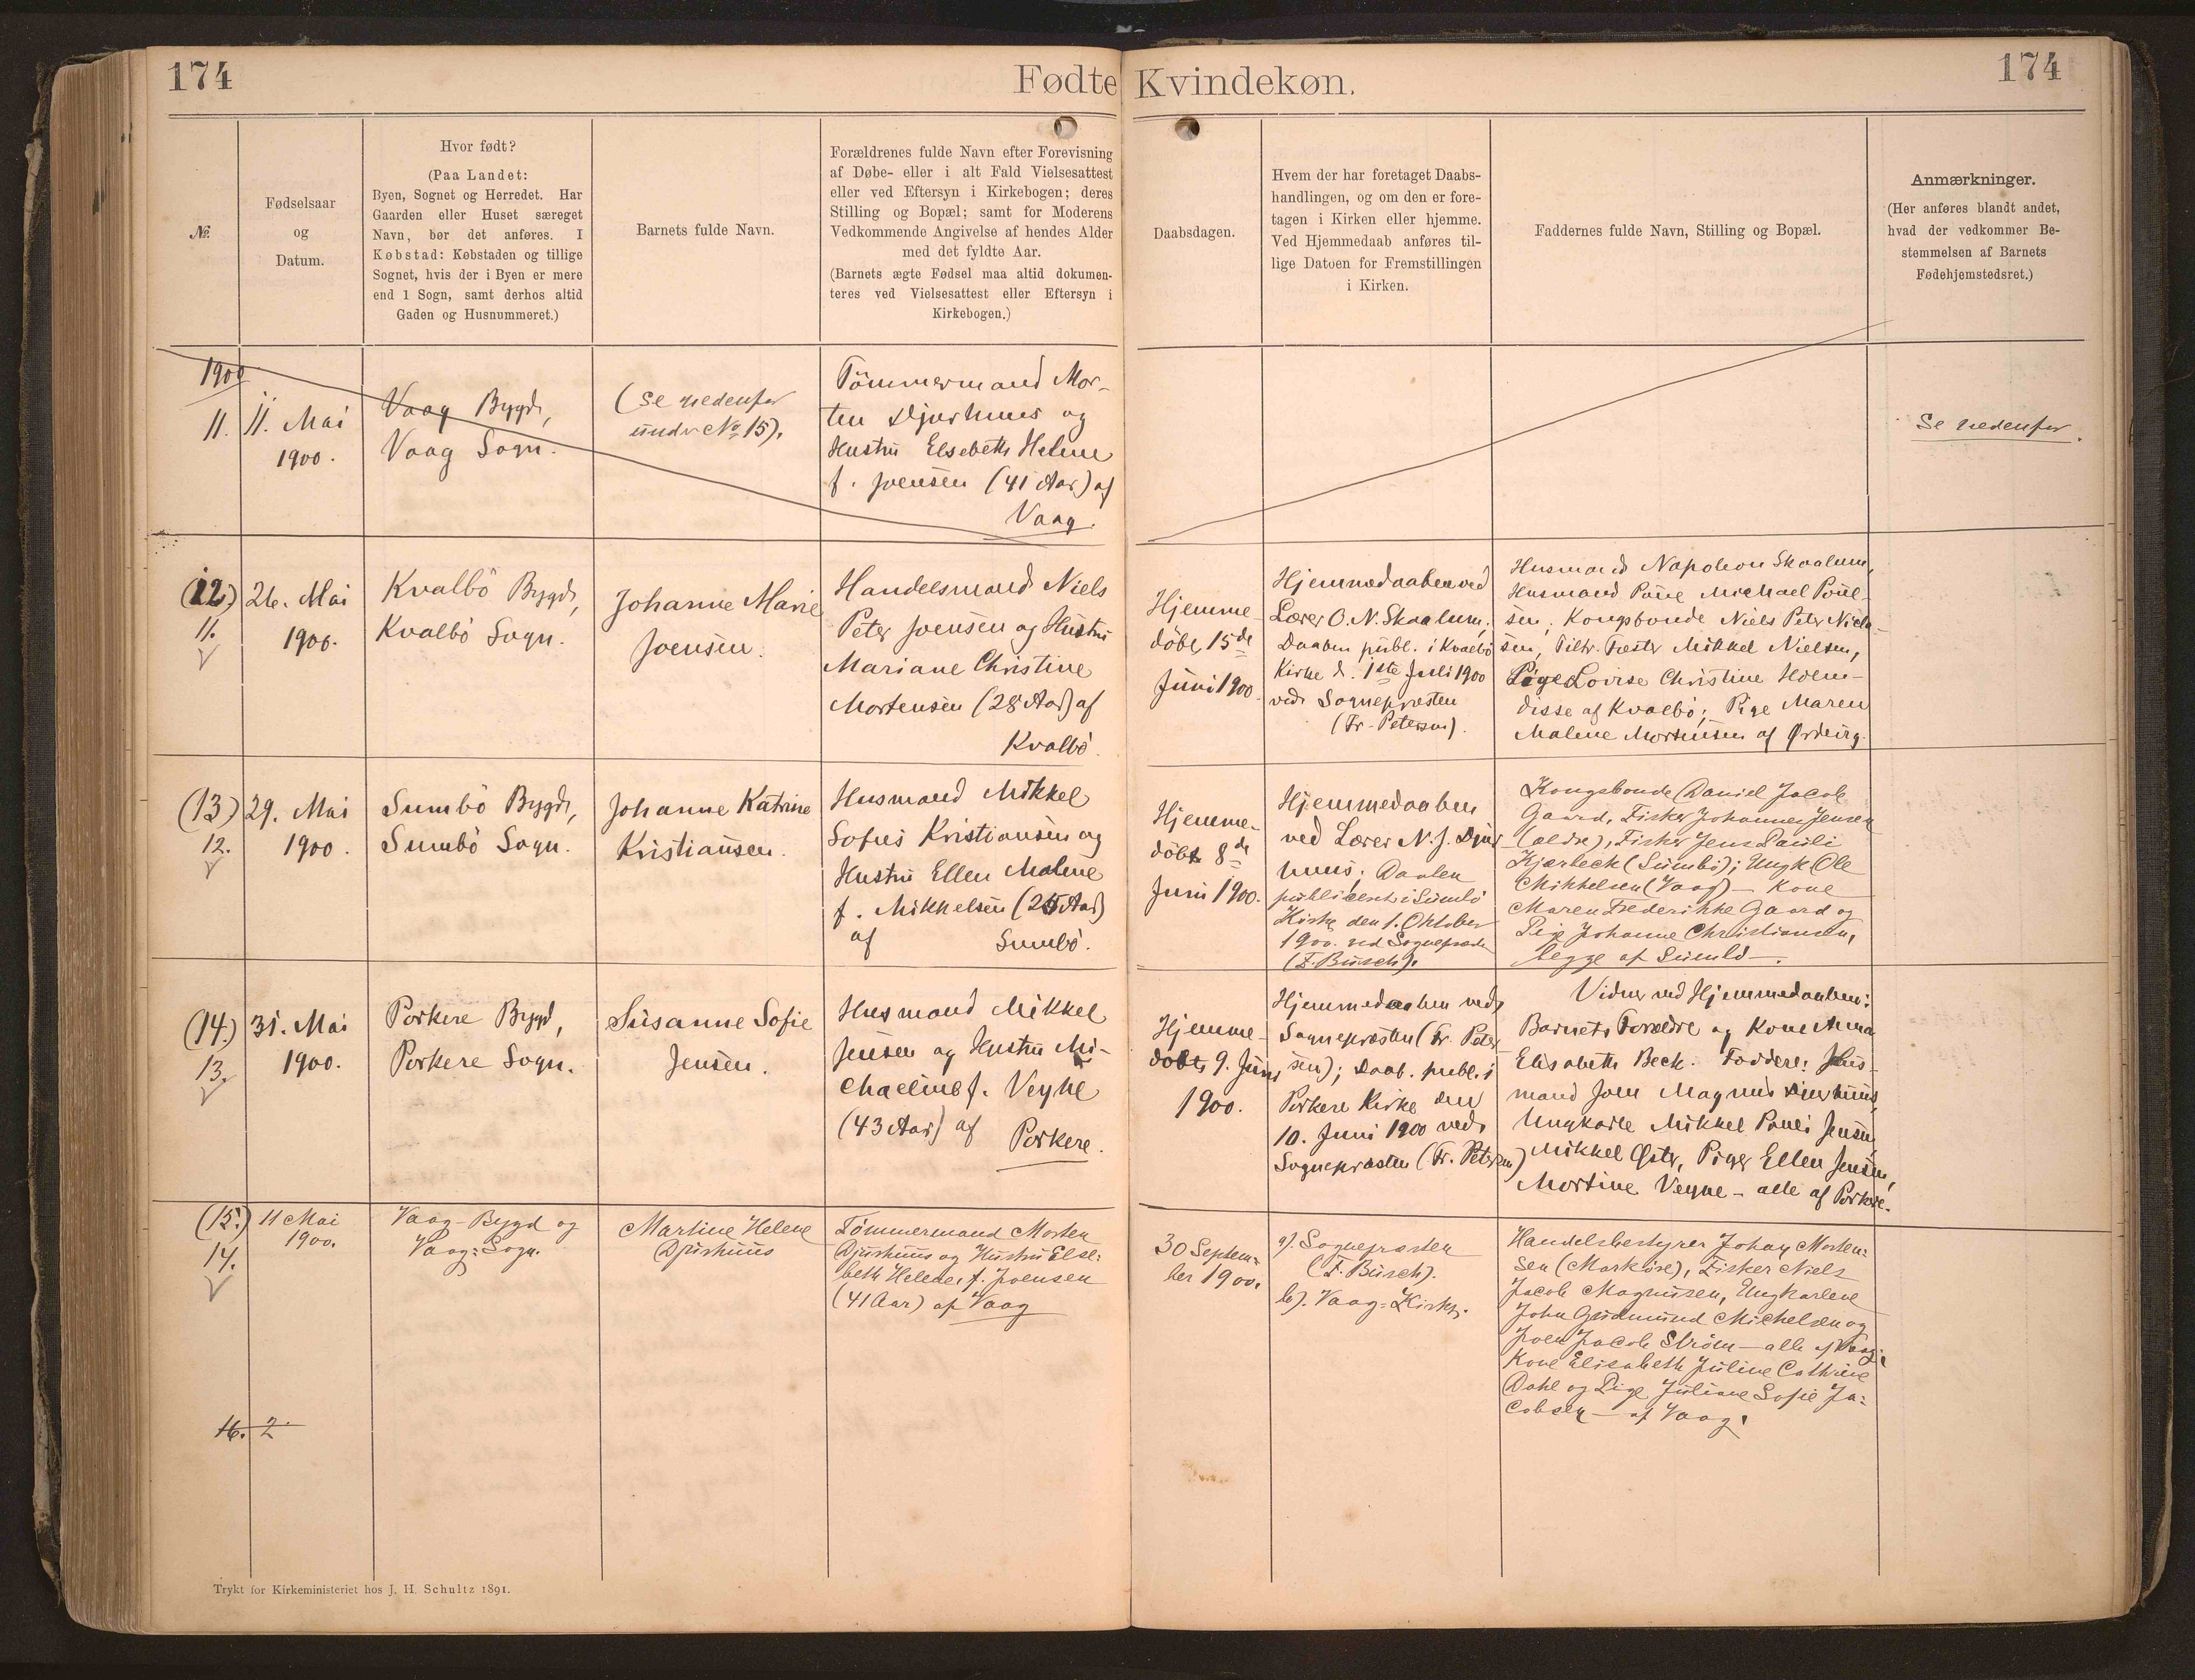 174
Fødte
Kvindekøn.
174
№.
Fødselsaar
og
Datum.
Hvor født?
(Paa Landet:
Byen, Sognet og Herredet. Har
Gaarden eller Huset særeget
Navn, bør det anføres. I
Købstad: Købstaden og tillige
Sognet, hvis der i Byen er mere
end 1 Sogn, samt derhos altid
Gaden og Husnummeret.)
Barnets fulde Navn.
Forældrenes fulde Navn efter Forevisning
af Døbe- eller i alt Fald Vielsesattest
eller ved Eftersyn i Kirkebogen; deres
Stilling og Bopæl; samt for Moderens
Vedkommende Angivelse af hendes Alder
med det fyldte Aar.
(Barnets ægte Fødsel maa altid dokumen-
teres ved Vielsesattest eller Eftersyn i
Kirkebogen.)
Daabsdagen.
Hvem der har foretaget Daabs-
handlingen, og om den er fore-
tagen i Kirken eller hjemme.
Ved Hjemmedaab anføres til-
lige Datoen for Fremstillingen
i Kirken.
Faddernes fulde Navn, Stilling og Bopæl.
Anmærkninger.
(Her anføres blandt andet,
hvad der vedkommer Be-
stemmelsen af Barnets
Fødehjemstedsret.)
1900
11.
11. Mai
1900.
Vaag Bygd,
Vaag Sogn.
(se nedenfor
under No 15).
Tömmermand Mor-
ten Djurhuus og
Hustru Elsebeth Helene
f. Joensen (41 Aar) af
Vaag.
Se nedenfor.
(12)
11.
26. Mai
1900.
Kvalbö Bygd,
Kvalbö Sogn.
Johanne Marie
Joensen.
Handelsmand Niels
Peter Joensen og Hustru
Mariane Christine
Mortensen (28 Aar) af
Kvalbö.
Hjemme-
döbt 15de
Juni 1900.
Hjemmedaaben ved
Lærer O. N. Skaalum;
Daaben publ. i Kvalbö
Kirke d. 1ste Juli 1900
ved Sognepræsten
(Fr. Petersen).
Husmand Napoleon Skaalum,
Husmand Poul Michael Poul-
sen, Kongsbonde Niels Peter Niel-
sen, Mikkel Nielsen,
Pige Lovise Christine Holm-
af Kvalbö; Pige Maren
Malene Mortensen af
(13)
12.
29. Mai
1900.
Sumbö Bygd,
Sumbö Sogn.
Johanne Katrine
Kristiansen.
Husmand Mikkel
Sofus Kristiansen og
Hustru Ellen Malene
f. Mikkelsen (25 Aar)
af Sumbö.
Hjemme-
döbt 8de
Juni 1900.
Hjemmedaaben
ved Lærer N. J. Djur-
huus; Daaben
publiceret i Sumbö
Kirke den 1. Oktober
1900. ved Sognepræsten
(F. Busch).
Kongsbonde Daniel Jacob
Gaard, Fisker Johannes Jensen
(ældre), Fisker Jens Pauli
Kjærbeck (Sumbö); Ungk. Ole
Mikkelsen (Vaag) – Kone
Maren Frederikke Gaard og
Pige Johanne Christiansen,
begge af Sumbö –.
(14.)
13.
31. Mai
1900.
Porkere Bygd,
Porkere Sogn.
Susanne Sofie
Jensen.
Husmand Mikkel
Jensen og Hustru Mi-
chaeline f. Veyhe
(43 Aar) af Porkere.
Hjemme-
döbt 9. Juni
1900.
Hjemmedaaben ved
Sognepræsten (Fr. Peter-
sen); Daab. publ. i
Porkere Kirke den
10. Juni 1900 ved
Sognepræsten (Fr. Petersen)
Vidner ved Hjemmedaaben:
Barnets Forældre og Kone Anna
Elisabeth Beck. Faddere: Hus-
mand Joen Magnus Djurhuus,
Ungkarle Mikkel Pauli Jensen,
Mikkel Öster, Piger Ellen Jensen,
Mortine Veyhe – alle af Porkere.
(15.)
14.
11 Mai
1900.
Vaag-Bygd og
Vaag-Sogn.
Martine Helene
Djurhuus
Tømmermand Morten
Djurhuus og Hustru Else-
beth Helene, f. Joensen
(41 Aar) af Vaag
30 Septem-
ber 1900.
a). Sognepræsten
(F. Busch).
b). Vaag-Kirke.
Handelsbestyrer Johan Morten-
sen (Marköre), Fisker Niels
Jacob Magnusen, Ungkarlene
John Gudmund Michelsen og
Joen Jacob Ström – alle af Vaag;
Kone Elisabeth Juline Cathrine
Dahl og Pige Juliane Sofie Ja-
cobsen – af Vaag.
16. 2
Trykt for Kirkeministeriet hos J. H. Schultz 1891.